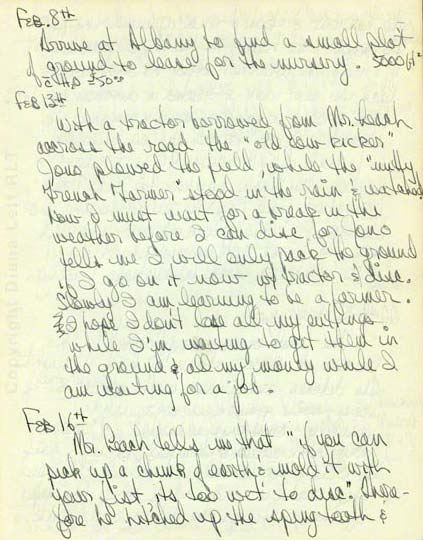 Feb. 8th
Arrive at Albany to find a small plot
of ground to lease for the nursery. 5000 ft²
$50.00
Feb 13th
With a tractor borrowed from Mr. Leach
across the road the "old cow kicker"
Jono plowed the field, while the "nutty
French Farmer" stood in the rain & watched
Now I must wait for a break in the
weather before I can disc for Jono
tells me I will only pack the ground
if I go on it now w/ tractor & disc.
Slowly I am learning to be a farmer.
I hope I don't lose all my cuttings
while I'm waiting to get them in
the ground & all my money while I
am waiting for a job.
Feb 16th
Mr. Leach tells me that "if you can
pick up a chunk of earth & mold it with
your fist, its too wet to disc". There-
fore he hitched up the spring tooth &
Copyright Diana Bell